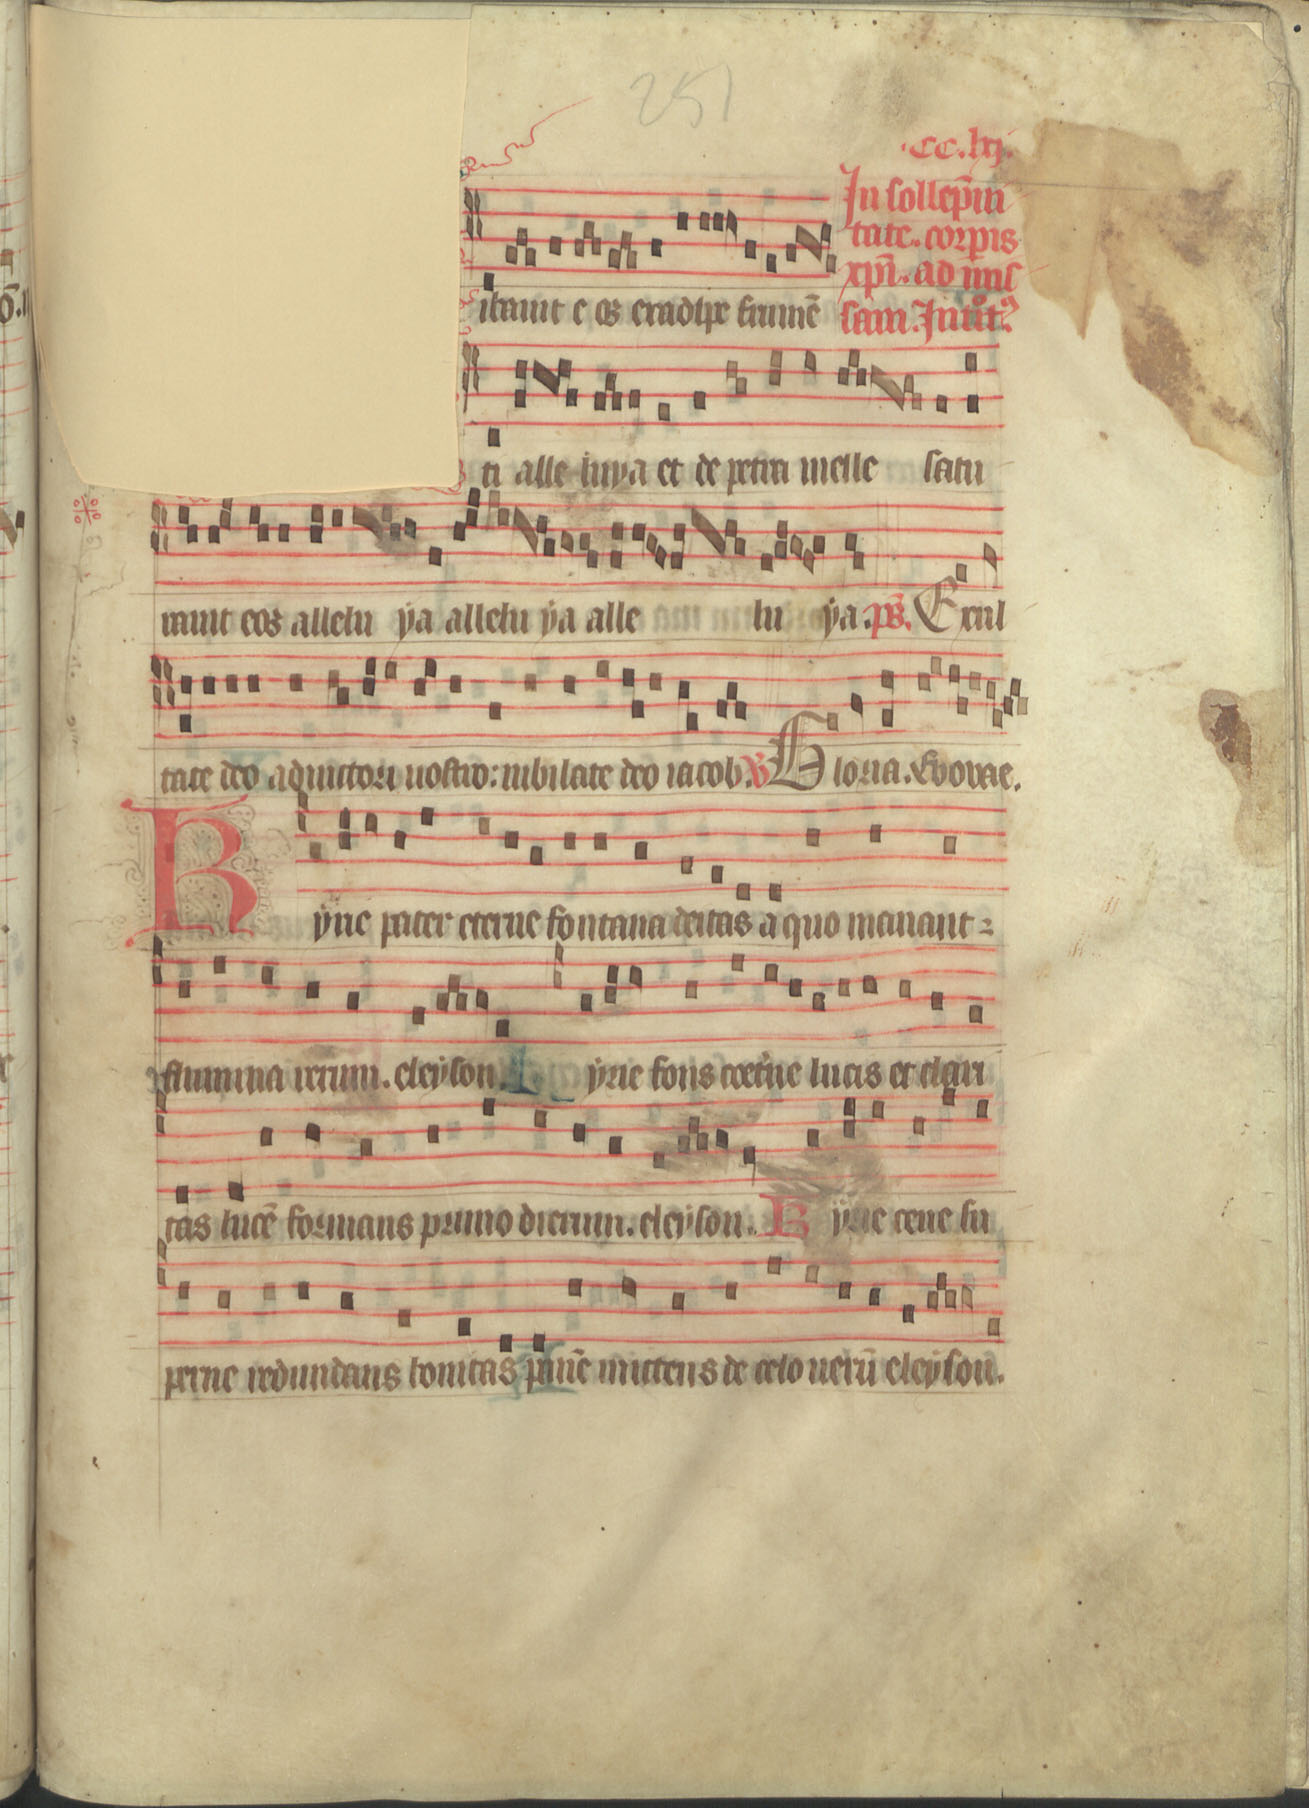 251
.cc.lij.
In sollep̄ni
tate. corpis
xpī. ad mis
sam. Introit9
ibauit e os exadipe frumē
ti alle luya et de petra melle satu
rauit eos allelu ẏa allelu ẏa alle lu ẏa. ps̄. Exul
tate deo adiutori nostro: iubilate deo iacob. V Gloria. Evovae.
Kẏrie pater eterne fontana deitas a quo manant =
flumina rerum. eleẏson. ẏrie fons coet̄ne lucis et clari
tas lucē formans primo dierum. eleẏson. K ẏrie cene su
perne redundans bonitas mittens de celo uerū eleẏson.